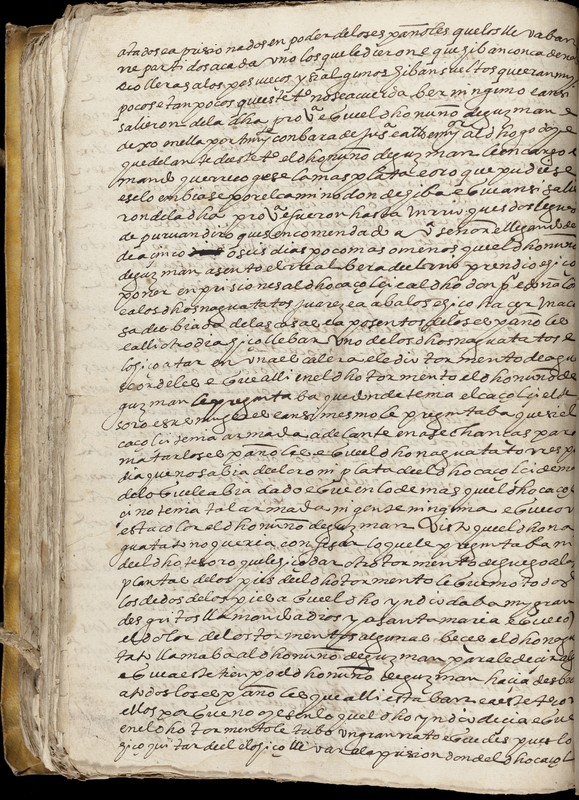 atados e aprisionados en poder de los españoles que los llevaban
rrepartidos a cada uno los que le dieron e que si iban con cadenas
e colleras a los pescuezos y si algunos iban sueltos que eran muy
pocos e tan pocos que este tº no se acuerda ver ninguno e ansi
salieron de la dha provª e quel dho nuño de guzman
dexo en ella por
que delante deste tº el dho nuño de guzman le encargo e
mando que rrecogese la mas plata e oro que pudiese
e se lo embiase por el camino donde iba e que ansi salie
ron de la dha provª e fueron hasta un rrio ques dos leguas
de puruandiro ques encomendado a
de a cinco o seis dias poco mas o menos quel dho nuño
de guzman asento el rreal ribera del rrio prendio e hizo
poner en prisiones al dho caçolçi e al dho don pº e don aº
e a los dhos naguatatos juarez e abalos e hizo hacer una ca
sa desbiada de las casas e aposentos de los españoles
e alli otro dia hizo llebar uno de los dhos naguatatos e
lo hizo atar en una escalera e le dio tormento de agua
e cordeles e que alli en el dho tormento el dho nuño de
guzman le preguntaba que donde tenia el caçolçi el te
soro e sus mugeres e ansimesmo le preguntaba que si el
caçolçi tenia armada adelante en asechanças para
matar los españoles e quel dho naguatato rrespon
dia que no sabia del oro ni plata del dho caçolçi demas
de lo que le abia dado e que en lo demas quel dho caçol
ci no tenia tal armada ni gente ninguna e que con
esta color el dho nuño de guzman visto quel dho na
guatato no queria confesar lo que le preguntaban
del dho tesoro que le hizo dar otro tormento de fuego a las
plantas de los pies del dho tormento le quemo todos
los dedos de los pies e quel dho yndio daba muy gran
des gritos llamando a dios y a santa maria e que co
el dolor de los tormentos algunas beces el dho nagua
tato llamaba al dho nuño de guzman para le decir algo
e que a este tienpo el dho nuño de guzman hacia desbiar
a todos los españoles que alli estaban e a este tº con
ellos porque no oyesen lo quel dho yndio decia e que
en el dho tormento le tubo un gran rrato e que despues lo
hizo quitar del e lo hizo llevar a la prision donde el dho caçol